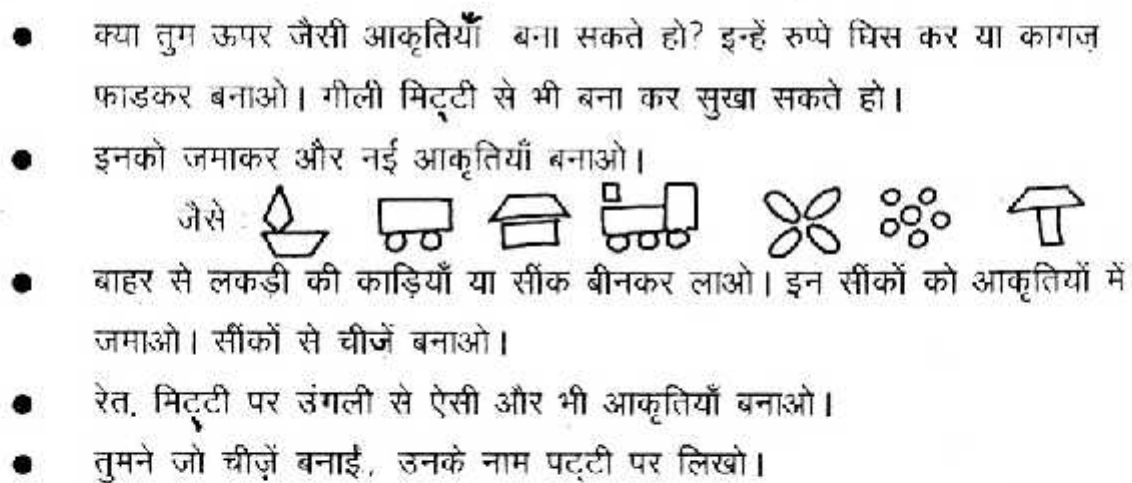 ● क्या तुम ऊपर जैसी आकृतियाँ बना सकते हो? इन्हें रुप्पे घिस कर या कागज़
फाडकर बनाओ। गीली मिट्टी से भी बना कर सुखा सकते हो।
● इनको जमाकर और नई आकृतियाँ बनाओ।
जैसे :
● बाहर से लकड़ी की काड़ियाँ या सींक बीनकर लाओ। इन सींकों को आकृतियों में
जमाओ। सींकों से चीजें बनाओ।
● रेत, मिट्टी पर उंगली से ऐसी और भी आकृतियाँ बनाओ।
● तुमने जो चीज़ें बनाईं, उनके नाम पट्टी पर लिखो।